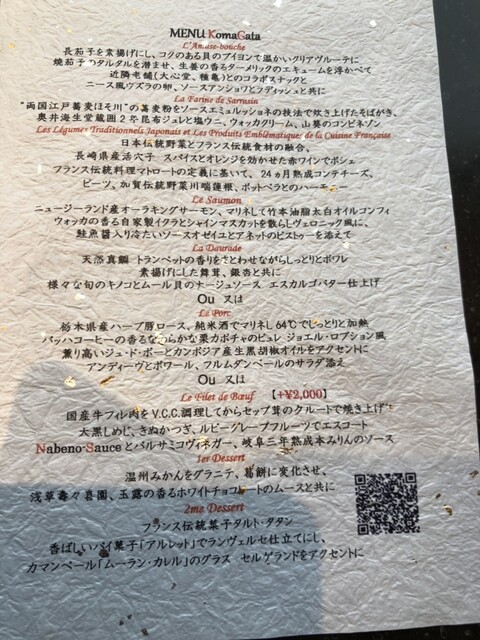 MENU KomaGata
L'Amuse-bouche
長茄子を素揚げにし、コクのある貝のブイヨンで温かいクリアヴルーテに
焼茄子のタルタルを潜ませ、生姜の香るターメリックのエキュームを浮かべて
近隣老舗(大心堂、種亀)とのコラボスナックと
ニース風ウズラの卵、ソースアンショワとラディッシュと共に
La Farine de Sarrasin
"両国江戸蕎麦ほそ川"の蕎麦粉をソースエミュルッショネの技法で炊き上げたそばがき、
奥井海生堂蔵囲2年昆布ジュレと塩ウニ、ウォッカクリーム、山葵のコンビネゾン
Les Légumes Traditionnels Japonais et Les Produits Emblématiques de la Cuisine Française
日本伝統野菜とフランス伝統食材の融合、
長崎県産活穴子 スパイスとオレンジを効かせた赤ワインでポシェ
フランス伝統料理マトロートの定義に基いて、24ヵ月熟成コンテチーズ、
ビーツ、加賀伝統野菜川端蓮根、ポットベラとのハーモニー
Le Saumon
ニュージーランド産オーラキングサーモン、マリネして竹本油脂太白オイルコンフィ
ウォッカの香る自家製イクラとシャインマスカットを散らしヴェロニック風に、
鮭魚醤入り冷たいソースオゼイユとアネットのピストゥーを添えて
La Daurade
天然真鯛 トランペットの香りをさとわせながらしっとりとポワレ
素揚げにした舞茸、銀杏と共に
様々な旬のキノコとムール貝のナージュソース エスカルゴバター仕上げ
Ou 又は
Le Porc
栃木県産ハーブ豚ロース、純米酒でマリネし64℃でしっとりと加熱
バッハコーヒーの香るなめらかな栗カボチャのピュレ ジョエル・ロブション風
薫り高いジュ・ド・ポーとカンボジア産生黒胡椒オイルをアクセントに
アンディーヴとポワール、フルムダンベールのサラダ添え
Ou 又は
Le Filet de Bœuf 【+¥2,000】
国産牛フィレ肉をV.C.C.調理してからセップ茸のクルートで焼き上げ
大黒しめじ、きぬかつぎ、ルビーグレープフルーツでエスコート
Nabeno-Sauceとバルサミコヴィネガー、岐阜三年熟成本みりんのソース
1er Dessert
温州みかんをグラニテ、葛餅に変化させ、
浅草壽々喜園、玉露の香るホワイトチョコレートのムースと共に
2me Dessert
フランス伝統菓子タルト・タタン
香ばしいパイ菓子「アルレット」でランヴェルセ仕立てにし、
カマンベール「ムーラン・カレル」のグラス セルゲランドをアクセントに